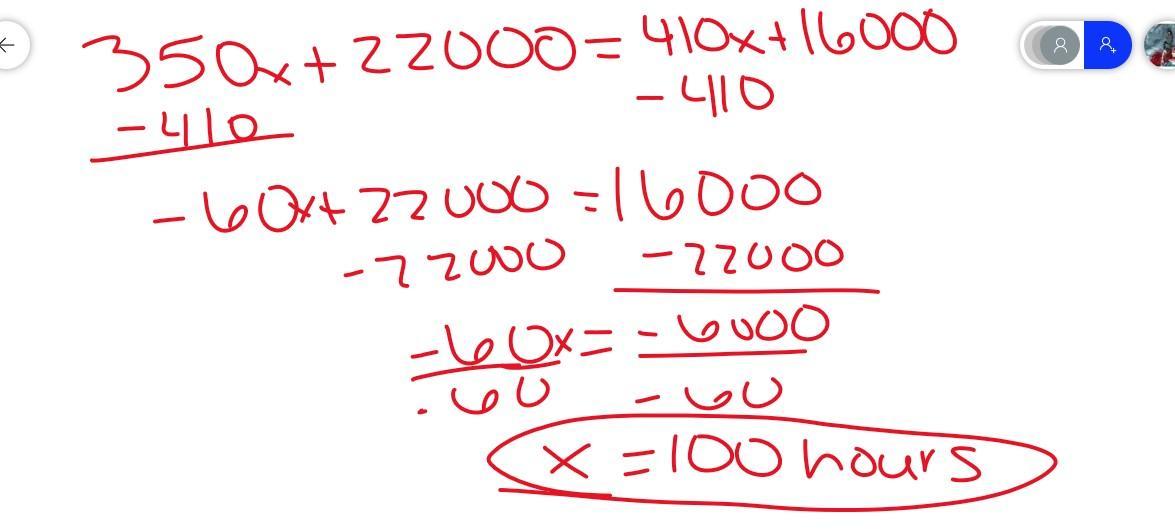 350x + 22000 = 410x + 16000
- 410 - 410
- 60x + 22000 = 16000
- 22000 - 22000
- 60x = - 6000
- 60 - 60
x = 100 hours